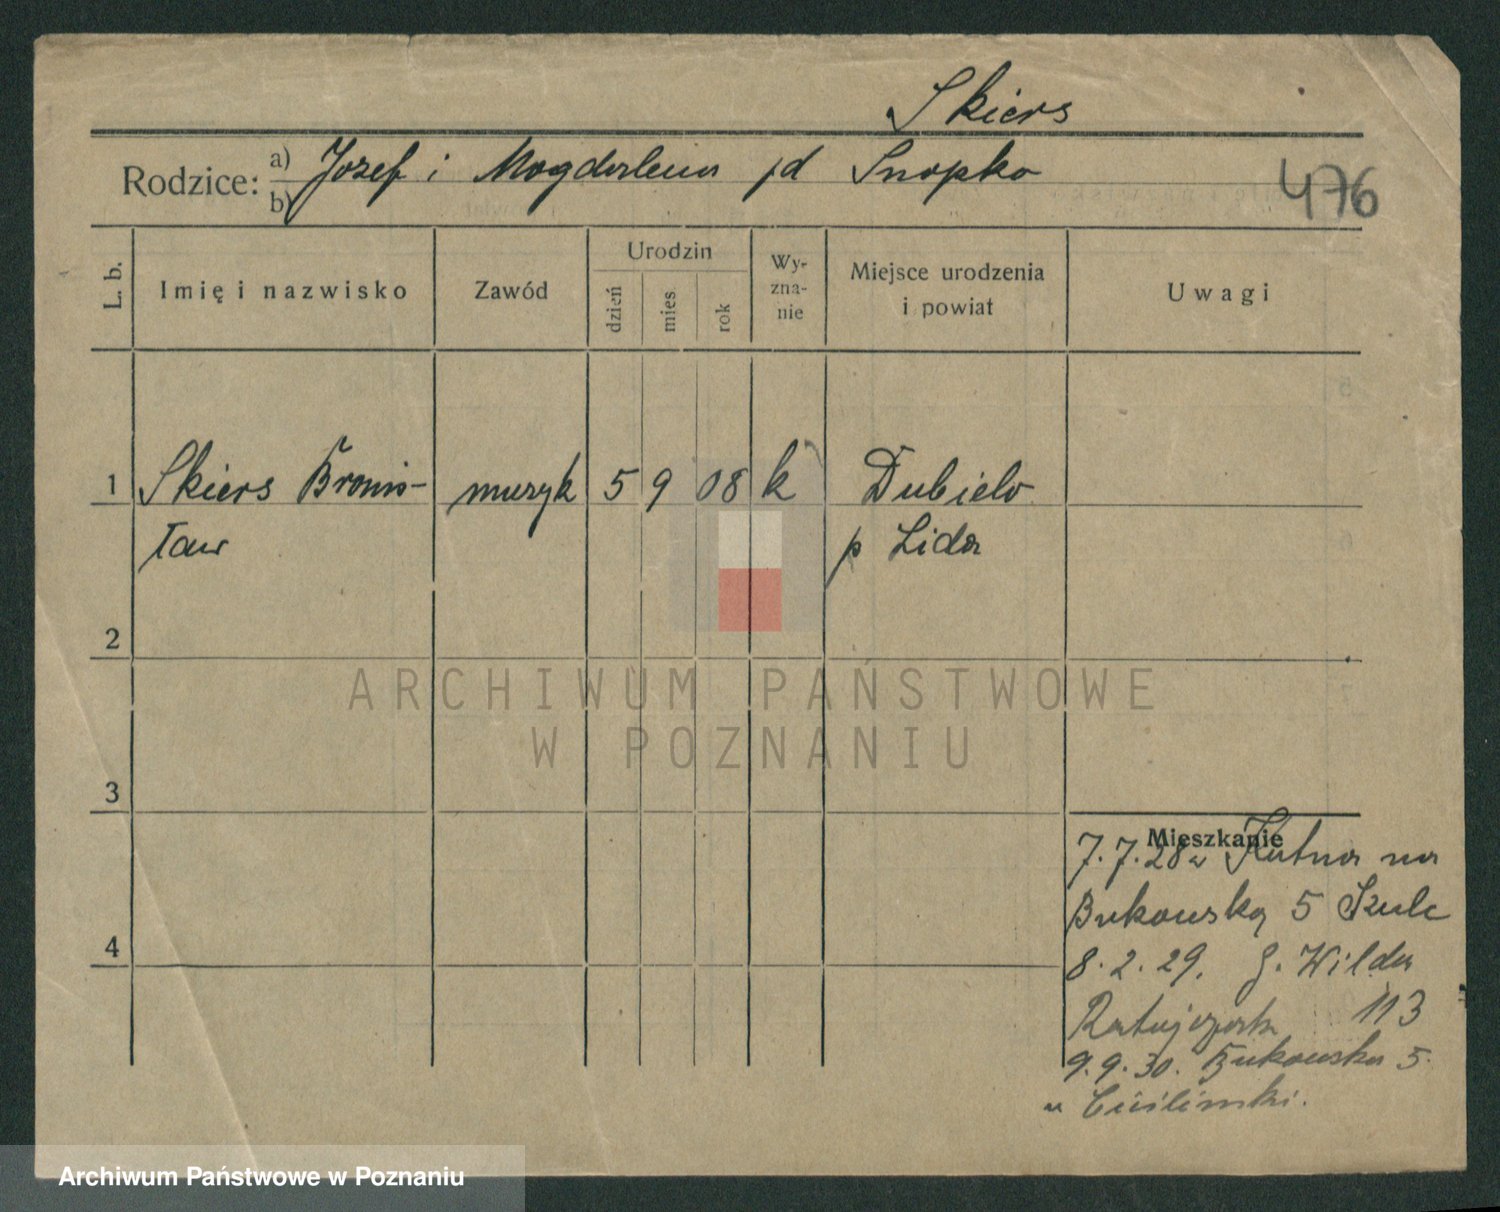 Skiers
Rodzice: a) Jozef i Magdalena z d Snopko
b)
476
L. b. Imię i nazwisko Zawód Urodzin dzień mies. rok Wy-zna-nie Miejsce urodzenia i powiat Uwagi
1 Skiers Bronis- muzyk 5 9 08 k Dubielo
ław p Lida
2
3
4
Mieszkanie
7.7.28 z Kutna na
Bukowską 5 Szulc
8.2.29. G. Wilda
Ratajczak 113
9.9.30. Bukowska 5.
u
ARCHIWUM PAŃSTWOWE
W POZNANIU
Archiwum Państwowe w Poznaniu